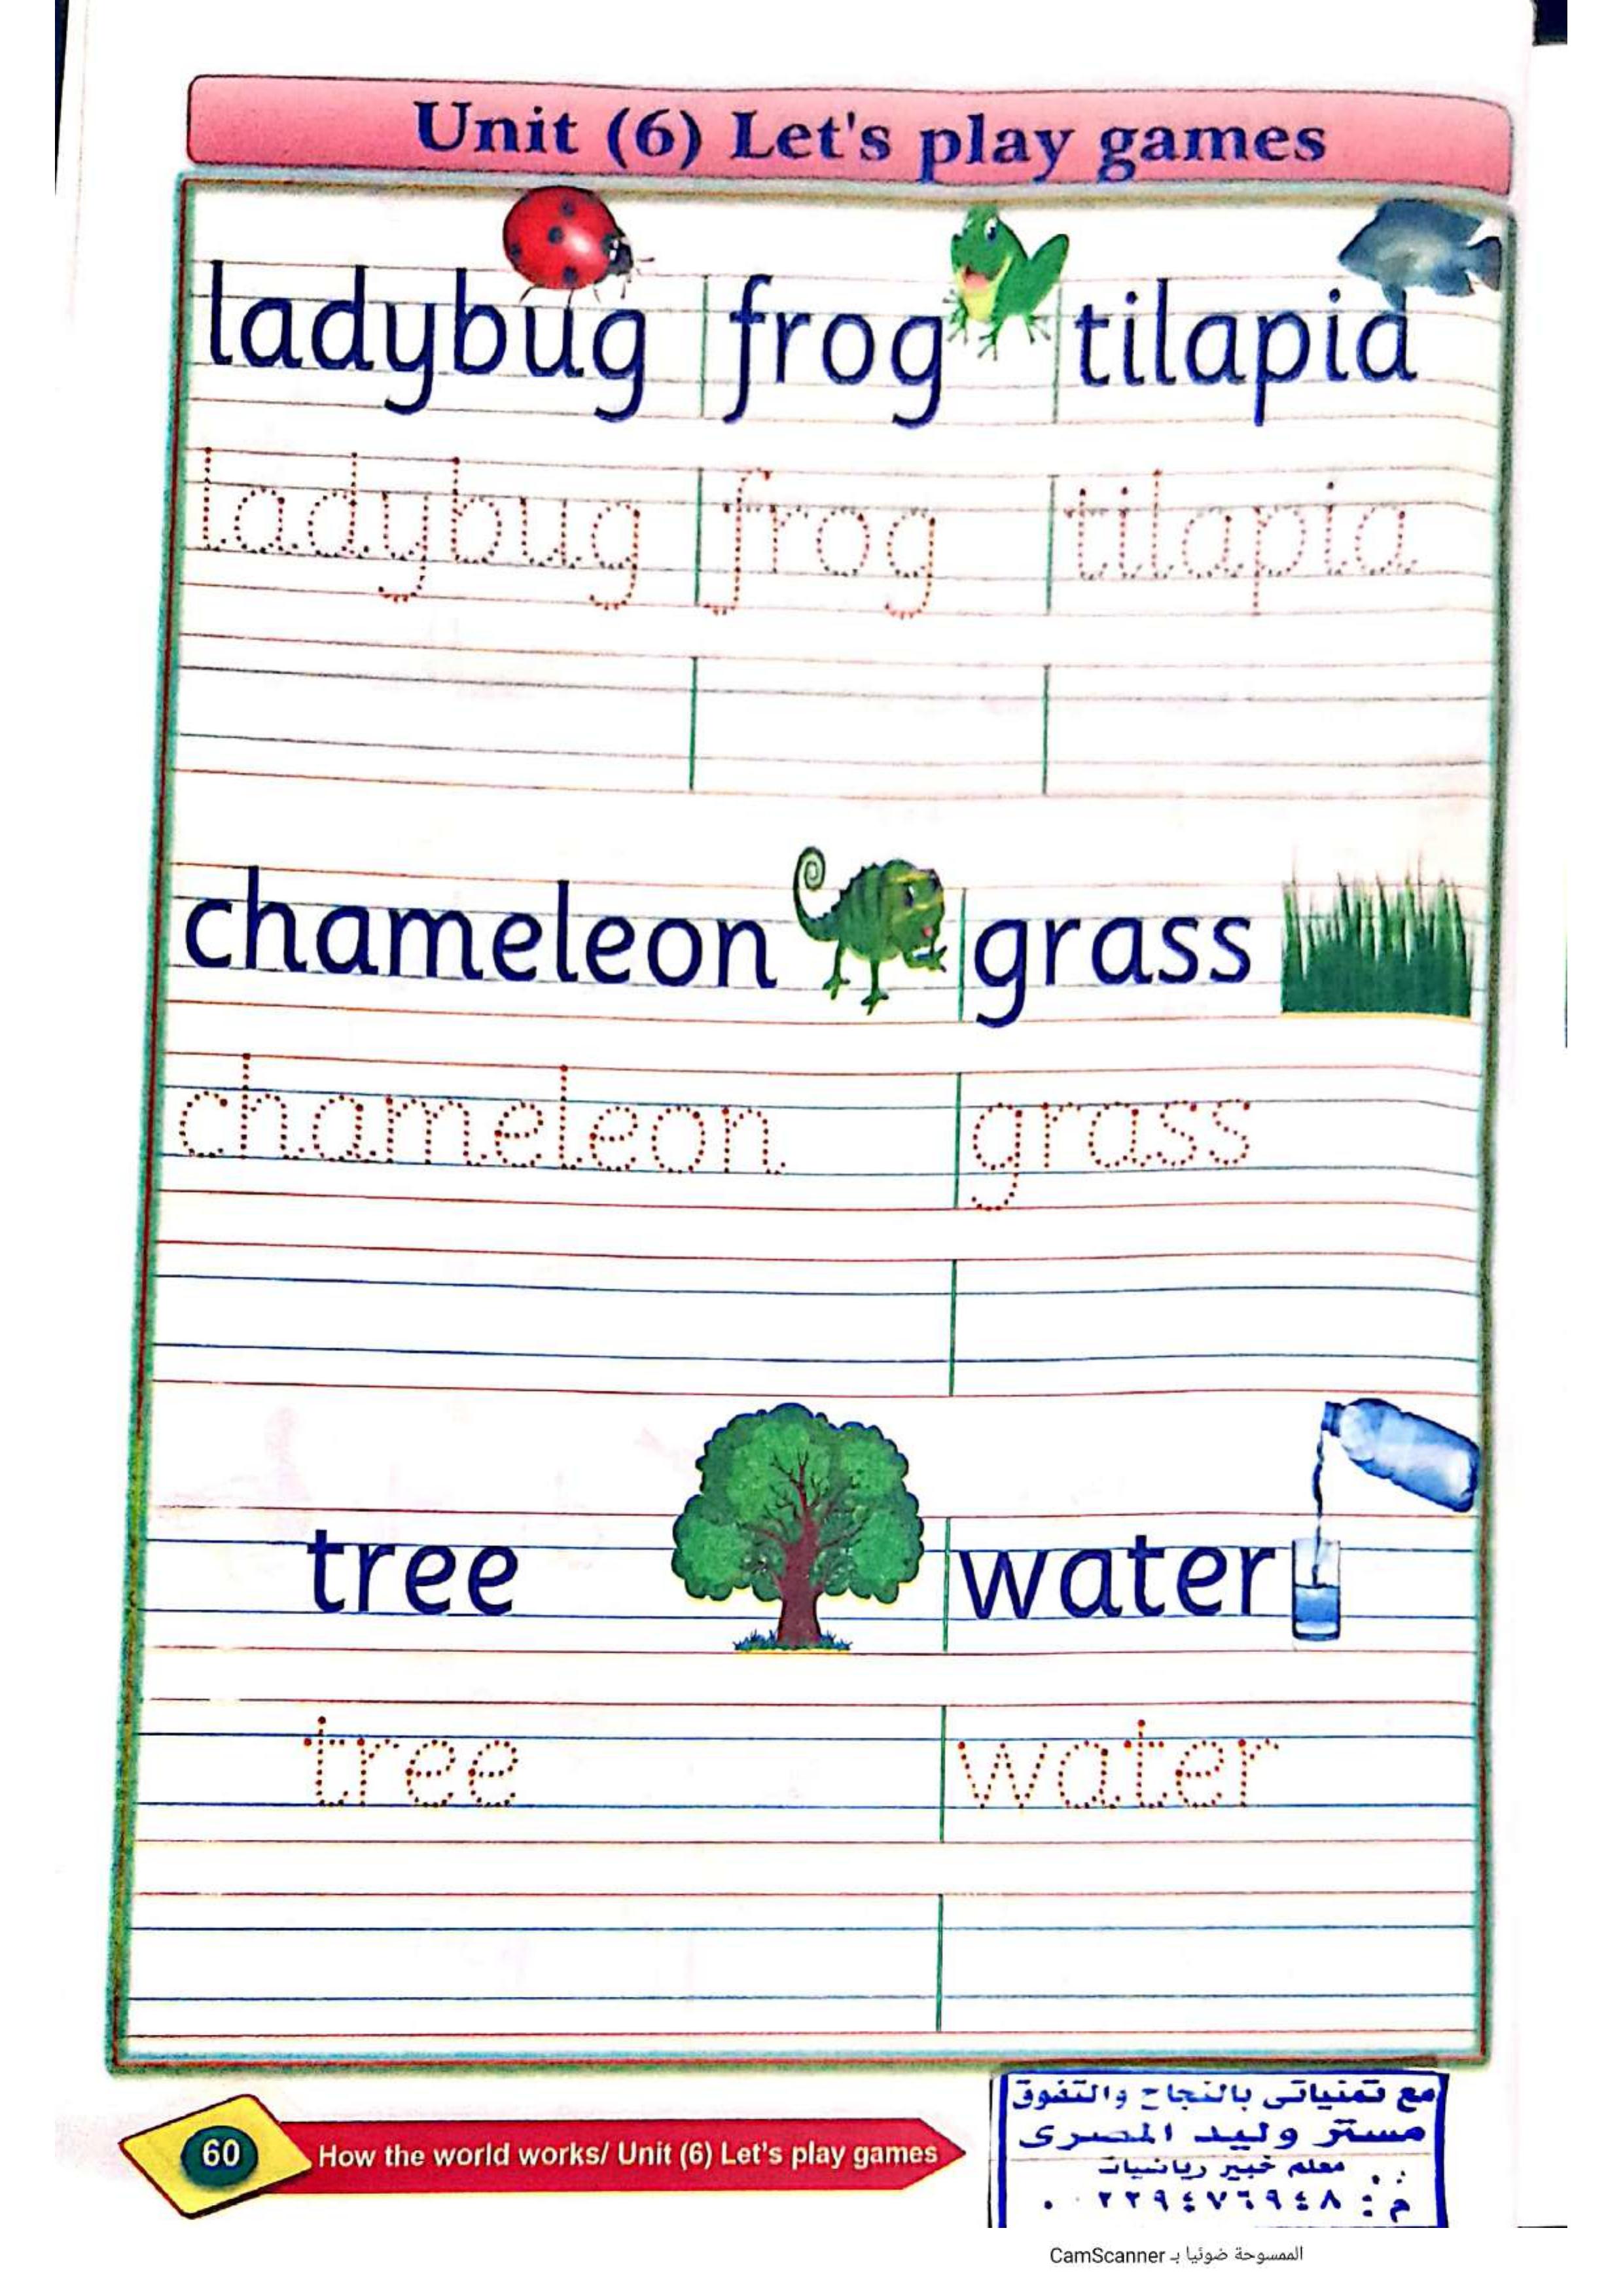 Unit (6) Let's play games
ladybug frog tilapia
ladybug frog tilapia
chameleon grass
chameleon grass
tree water
tree water
60 How the world works/ Unit (6) Let's play games
مع تمنياتى بالنجاح والتفوق
مستر وليد المصرى
معلم خبير رياضيات
الممسوحة ضوئيا بـ CamScanner